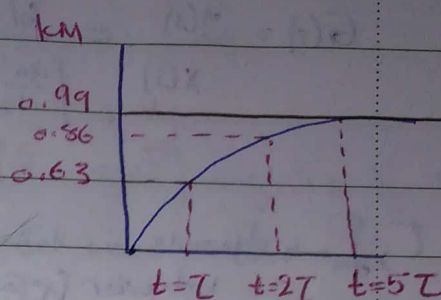 KM
0.99
0.86
0.63
t=τ t=2τ t=5τ